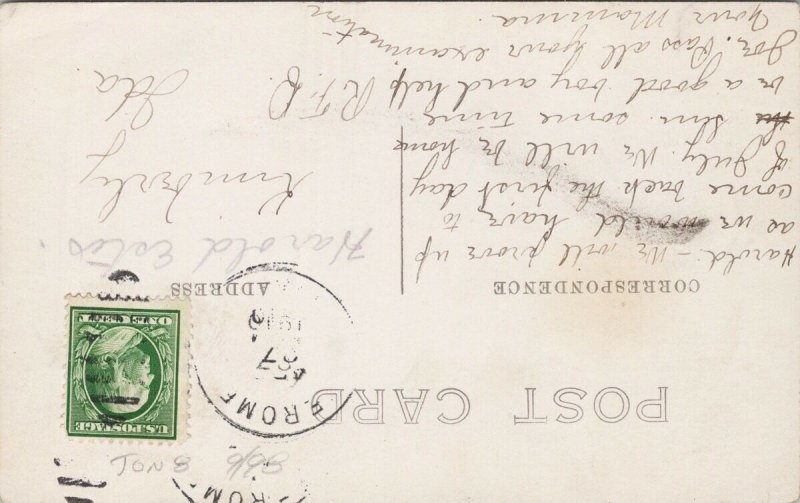 POST CARD
CORRESPONDENCE
Harold - We will prove up
as we would have to
come back the first day
of July. We will be home
some time
be a good boy and help
Pass all your examination
Your Mamma
EROME
27
1912
ADDRESS
Harold Estes.
Kimberly
Ida
R.F.D.
U.S. POSTAGE
ONE CENT